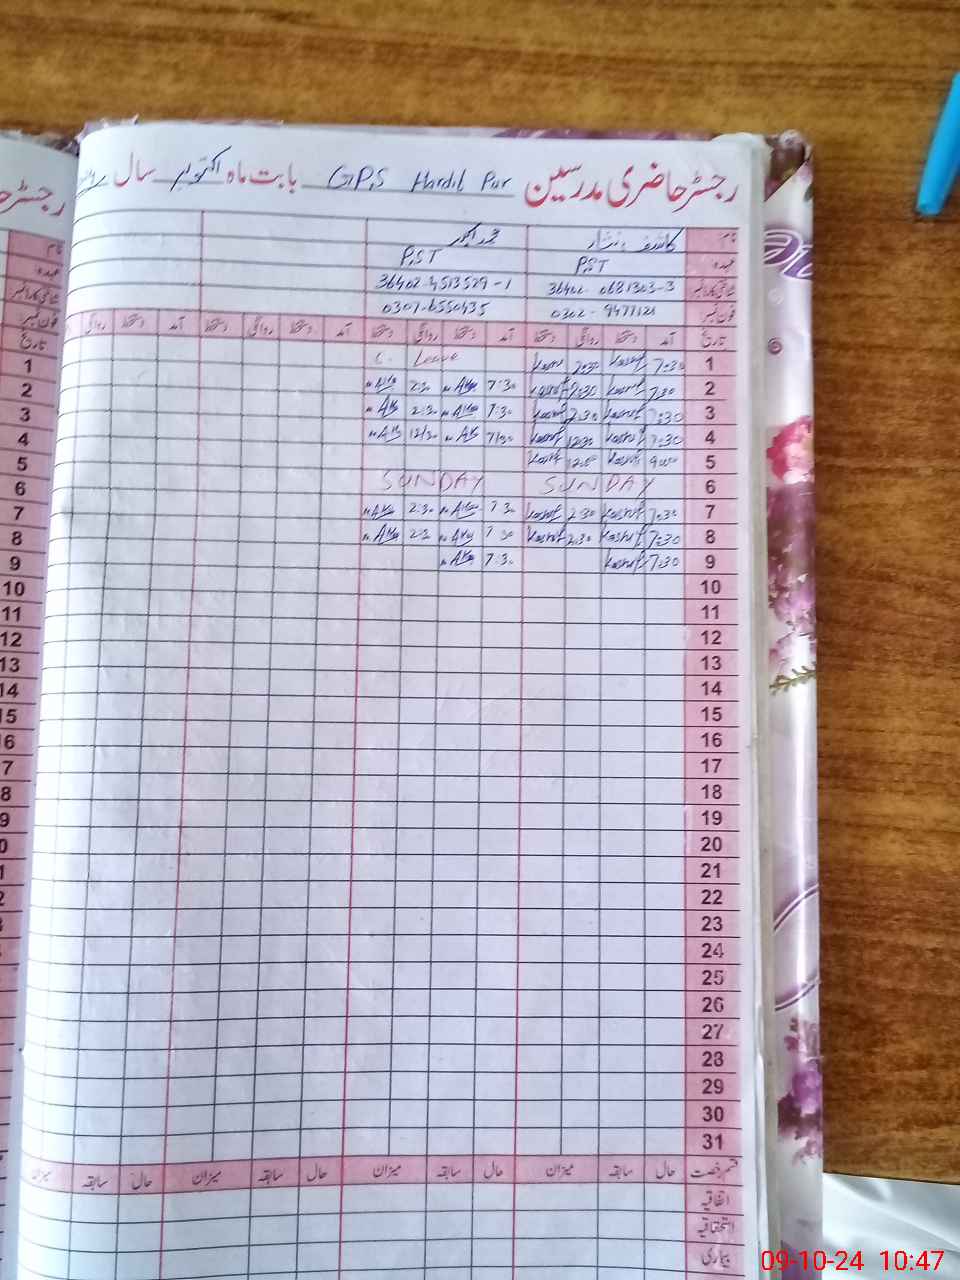 رجسٹر حاضری مدرسین GPS Hardil Pur بابت ماہ اکتوبر سال
نام کاشف نثار محمد اکبر
عہدہ PST PST
شناختی کارڈ نمبر 36402-0681303-3 36402-4513529-1
فون نمبر 0302-9477121 0307-6550435
تاریخ آمد دستخط روانگی دستخط آمد دستخط روانگی دستخط آمد دستخط روانگی دستخط آمد دستخط روانگی
1 7:30 Kashif 2:30 Kashif C. Leave
2 7:30 Kashif 2:30 Kashif 7:30 M Akbar 2:30 M Akbar
3 7:30 Kashif 2:30 Kashif 7:30 M Akbar 2:30 M Akbar
4 7:30 Kashif 12:30 Kashif 7:30 M Akbar 12:30 M Akbar
5 9:00 Kashif 12:00 Kashif
6 SUNDAY SUNDAY
7 7:30 Kashif 2:30 Kashif 7:30 M Akbar 2:30 M Akbar
8 7:30 Kashif 2:30 Kashif 7:30 M Akbar 2:30 M Akbar
9 7:30 Kashif 7:30 M Akbar
10
11
12
13
14
15
16
17
18
19
20
21
22
23
24
25
26
27
28
29
30
31
قسم رخصت حال سابقہ میزان حال سابقہ میزان حال سابقہ میزان حال سابقہ میزان
اتفاقیہ
استحقاقیہ
بیماری
09-10-24 10:47